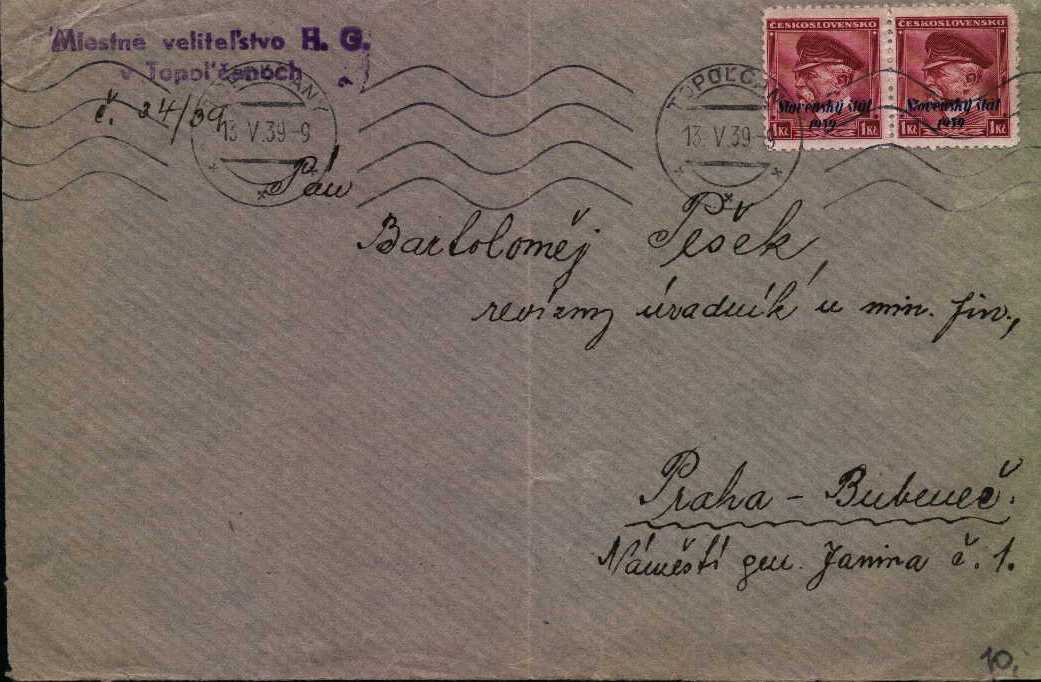 Miestne veliteľstvo H. G.
v Topoľčanoch
č. 24/39
TOPOĽČAN
13 V.39-9
TOPOĽČAN
13 V.39-9
ČESKOSLOVENSKO
Slovenský štát
1939
1Kč 1Kč
ČESKOSLOVENSKO
Slovenský štát
1939
1Kč 1Kč
Pán
Bartoloměj Pešek,
revízny úradník u min. fin.,
Praha - Bubeneč.
Náměstí gen. Janina č. 1.
10.